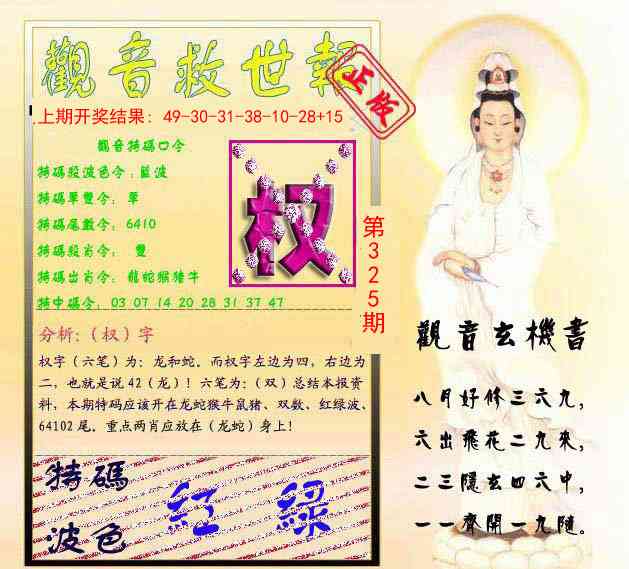 觀音救世報
正版
上期开奖结果：49-30-31-38-10-28+15
觀音特碼口令
特碼段波色令：藍波
特碼單雙令：單
特碼尾數令：6410
特碼段肖令：雙
特碼出肖令：龍蛇猴豬牛
特中碼令：03 07 14 20 28 31 37 47
权
第325期
分析：（权）字
权字（六笔）为：龙和蛇．而权字左边为四，右边为
二，也就是说42（龙）！六笔为：（双）总结本报资
料，本期特码应该开在龙蛇猴牛鼠猪、双数、红绿波、
64102尾．重点两肖应放在（龙蛇）身上！
特碼
波色
紅 綠
觀音玄機書
八月好修三六九，
六出飛花二九來，
二三隱玄四六中，
一一齊開一九隨。